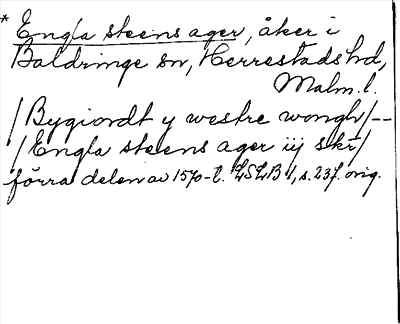 * Engla steens ager, åker i
Baldringe sn, Herrestads hd,
Malm. l.
/Bygiordt y westre wongh/--
/Engla steens ager iij skr/
förra delen av 1570-t. LSLB 1, s. 23f. orig.